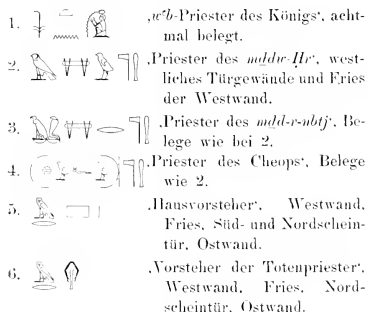 1. ‚wʿb-Priester des Königs‘, acht-
mal belegt.
2. ‚Priester des mḏdw-Ḥr‘, west-
liches Türgewände und Fries
der Westwand.
3. ‚Priester des mḏd-r-nbtj‘, Be-
lege wie bei 2.
4. ‚Priester des Cheops‘, Belege
wie 2.
5. ‚Hausvorsteher‘, Westwand,
Fries, Süd- und Nordschein-
tür, Ostwand.
6. ‚Vorsteher der Totenpriester‘,
Westwand, Fries, Nord-
scheintür, Ostwand.